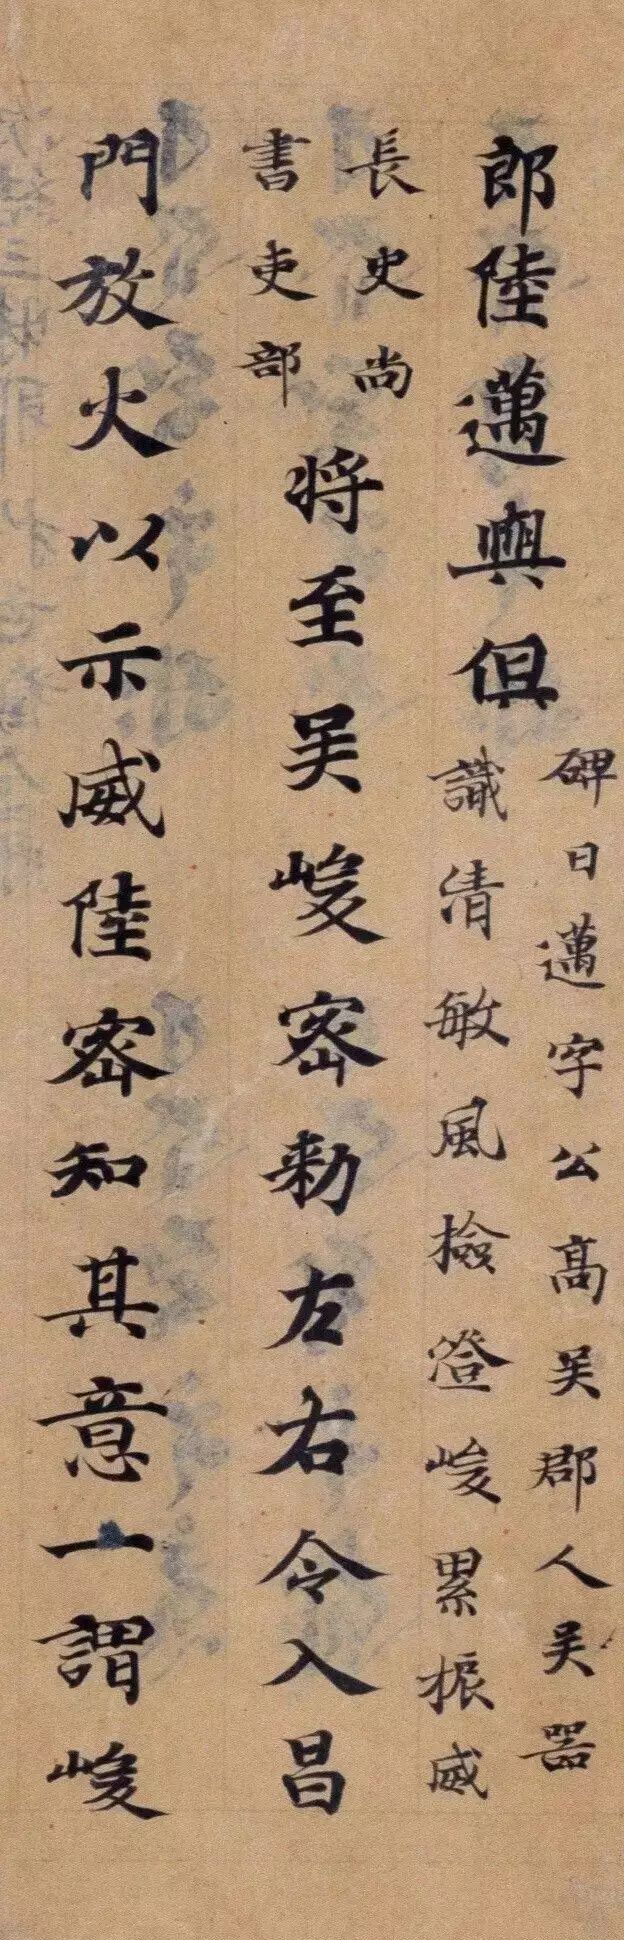 郎陸邁與俱
碑曰邁字公高吳郡人吳器
識清敏風檢澄峻累振威
長史尚
書吏部
將至吳峻密勑左右令入昌
門放火以示威陸密知其意一謂峻